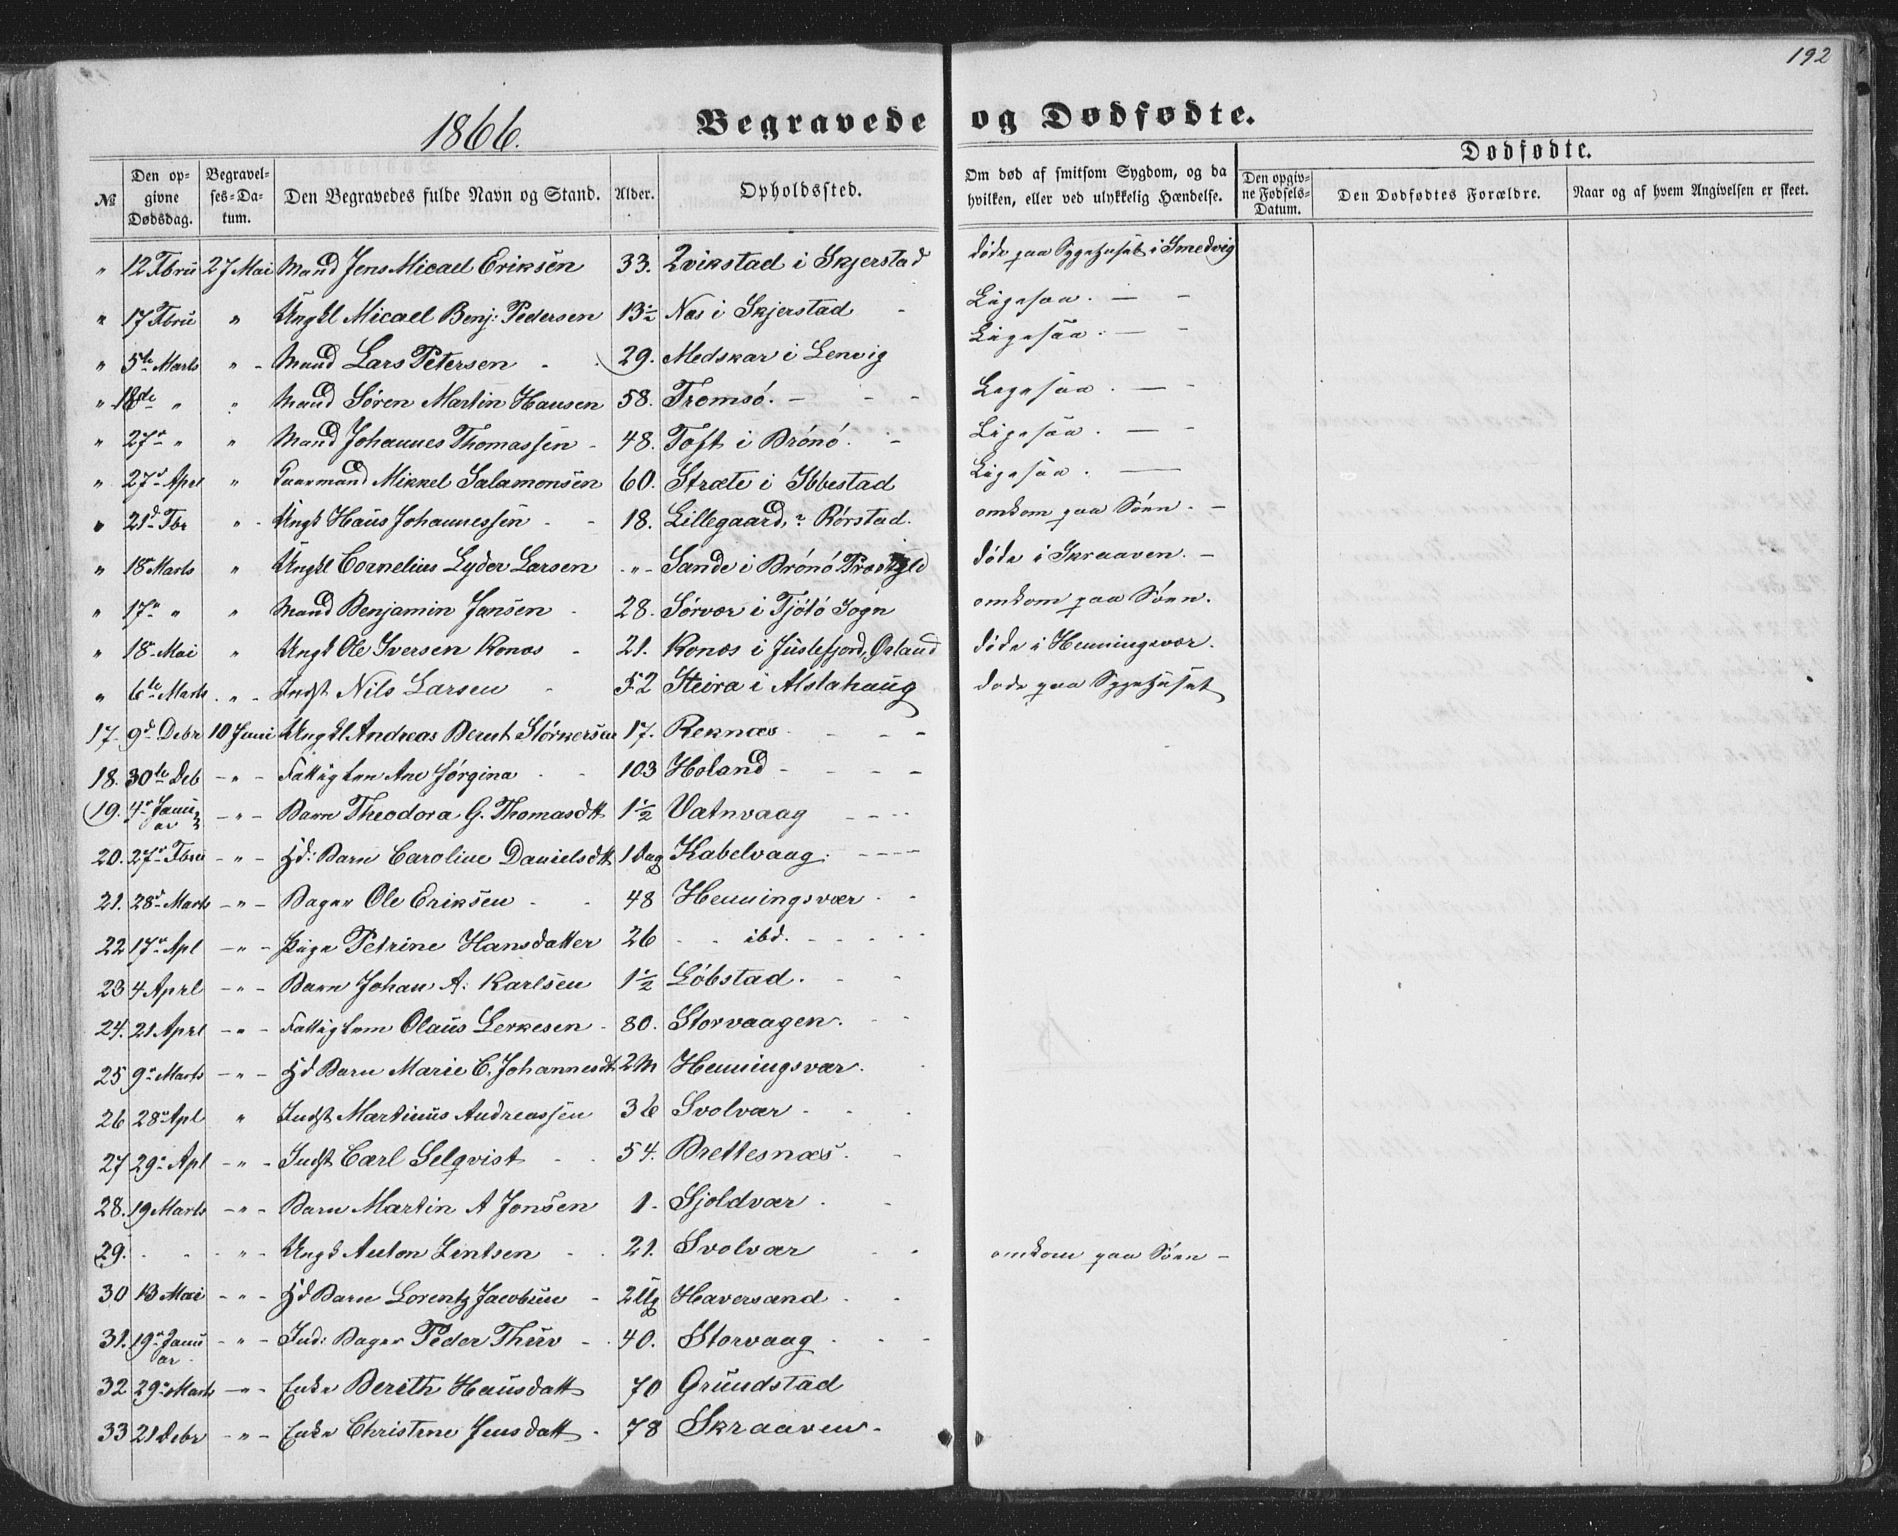 192
1866. Begravede og Dødfødte.
№ Den opgivne Dødsdag. Begravelses-Datum. Den Begravedes fulde Navn og Stand. Alder. Opholdssted. Om død af smitsom Sygdom, og da hvilken, eller ved ulykkelig Hændelse. Dødfødte. Den opgivne Fødsels-Datum. Den Dødfødtes Forældre. Naar og af hvem Angivelsen er skeet.
" 12 Fbru 27 Mai Mand Jens Micael Eriksen 33. Qvikstad i Skjerstad døde paa Sygehuset i Smedvig
" 17 Fbru " Ungkl Micael Benj: Pedersen 13½ Næs i Skjerstad - Ligesaa. — -
" 5te Marts " - Mand Lars Petersen - 29. Medskar i Lenvig Ligesaa. — -
" 18de " " Mand Søren Martin Hansen 58. Tromsö. - - - Ligesaa. — -
" 27de " " Mand Johannes Thomassen - 48. Toft i Brönö. - Ligesaa. — -
" 27de Aprl " Mand Mikkel Salamonsen 60. Stræte i Ibbestad Ligesaa. —
" 21d Fbr " - Ungk Hans Johannessen - - 18. Lillegaard, Rörstad. omkom paa Söen. -
" 18de Marts " Ungkl Cornelius Lyder Larsen " - Sande i Brönö Præstgld døde i Skraaven. -
" 17de " " Mand Benjamin Jansen - 28. Sörvær i Tjötö Sogn omkom paa Söen.
" 18de Mai " Ungk Ole Iversen Konæs - 21. Konæs i Justefjord, Örland døde i Henningsvær.
" 6te Marts " - Indst Nils Larsen - 52 Steira i Alstahaug døde paa Sygehuset
17. 9d Debr 10 Juni Ungkl Andreas Bernt Störkersen 17. Reknæs - - -
18. 30te Deb - " - Fattiglem Ane Jörgina - - 103 Holand - - - -
19. 4de Januar - " - Barn Theodora G. Thomasdtt 1½ Vatnvaag - - - -
20. 27de Fbru - " - Hd: Barn Caroline Danielsdtt 1 Dag Kabelvaag. - - - -
21. 28d Marts - " - Bager Ole Eriksen - - 48 Henningsvær - -
22 17de Apl - " - Pige Petrine Hansdatter 26 - - ibd. - - - -
23 4 Aprl - " - Barn Johan A. Karlsen 1½ Löbstad. - -
24. 21 Aprl - " - Fattiglem Olaus Lerkesen - 80. Storvaagen. - -
25 9de Marts - " - Hd Barn Marie C. Johannesdt 2 M Henningsvær. -
26 28de Apl " Indst Martinus Andreassen 36 Svolvær - - -
27 29de Apl - " - Indst Carl Selqvist - - 54. Brettesnæs. - -
28. 19 Marts - " - Barn Martin A Jonsen 1. Sjoldvær - -
29. - - - " - Ungk Anton Lintsen - - 21. Svolvær - - omkom paa Söen -
30 13 Mai - " - Hd Barn Lorentz Jacobsen - 2 Ug Haversand - -
31. 19de Januar - " - Ind: Bager Peder Thuv - - 40. Storvaag - - -
32 29de Marts - " - Enke Berith Hansdatt 70 Grundstad
33 21 Debr - " - Enke Christine Jensdatt - 78 Skraaven -